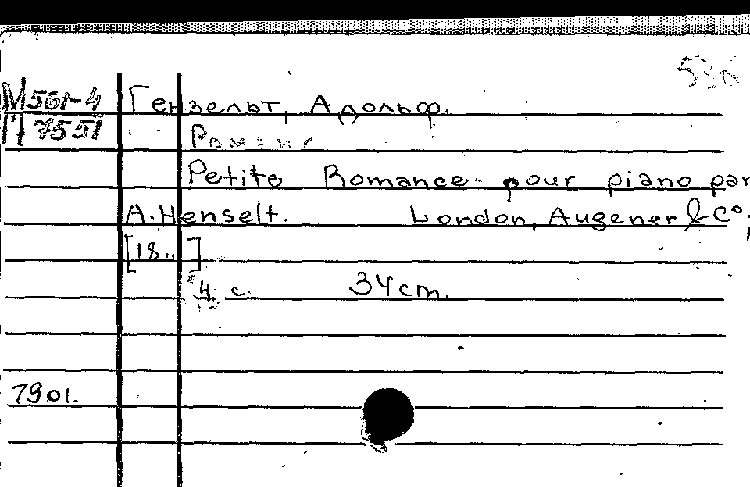 М561-4 Гензельт, Адольф.
7551 Романс
Petite Romance pour piano par
A. Henselt. London, Augener & Co,
[18..]
4 с. 34 cm.
7901.